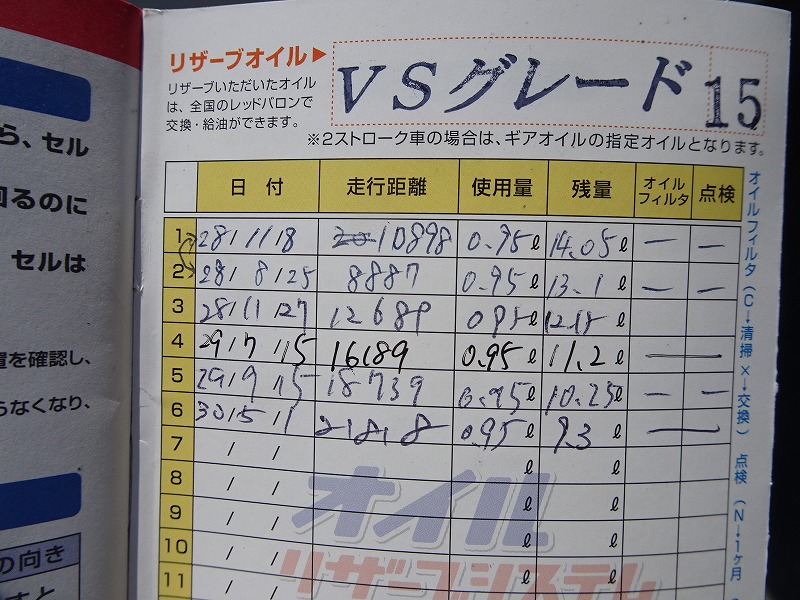 リザーブオイル▶
リザーブいただいたオイル
は、全国のレッドバロンで
交換・給油ができます。
VSグレード 15
※2ストローク車の場合は、ギアオイルの指定オイルとなります。
日 付 走行距離 使用量 残量 オイルフィルタ 点検
1 28/11/18 10898 0.95ℓ 14.05ℓ — —
2 28/8/25 8887 0.95ℓ 13.1ℓ — —
3 28/11/27 12689 0.95ℓ 12.15ℓ
4 29/7/15 16189 0.95ℓ 11.2ℓ —
5 29/9/15 18739 0.95ℓ 10.25ℓ — —
6 30/5/1 21818 0.95ℓ 9.3ℓ —
7 / / ℓ ℓ
8 / / ℓ ℓ
9 / / ℓ ℓ
10 / / ℓ ℓ
11 / /
オイル
リザーブシステム
オイルフィルタ(C→清掃 ×→交換) 点検(N→1ヶ月
ら、セル
回るのに
セルは
置を確認し、
らなくなり、
の向き
すと